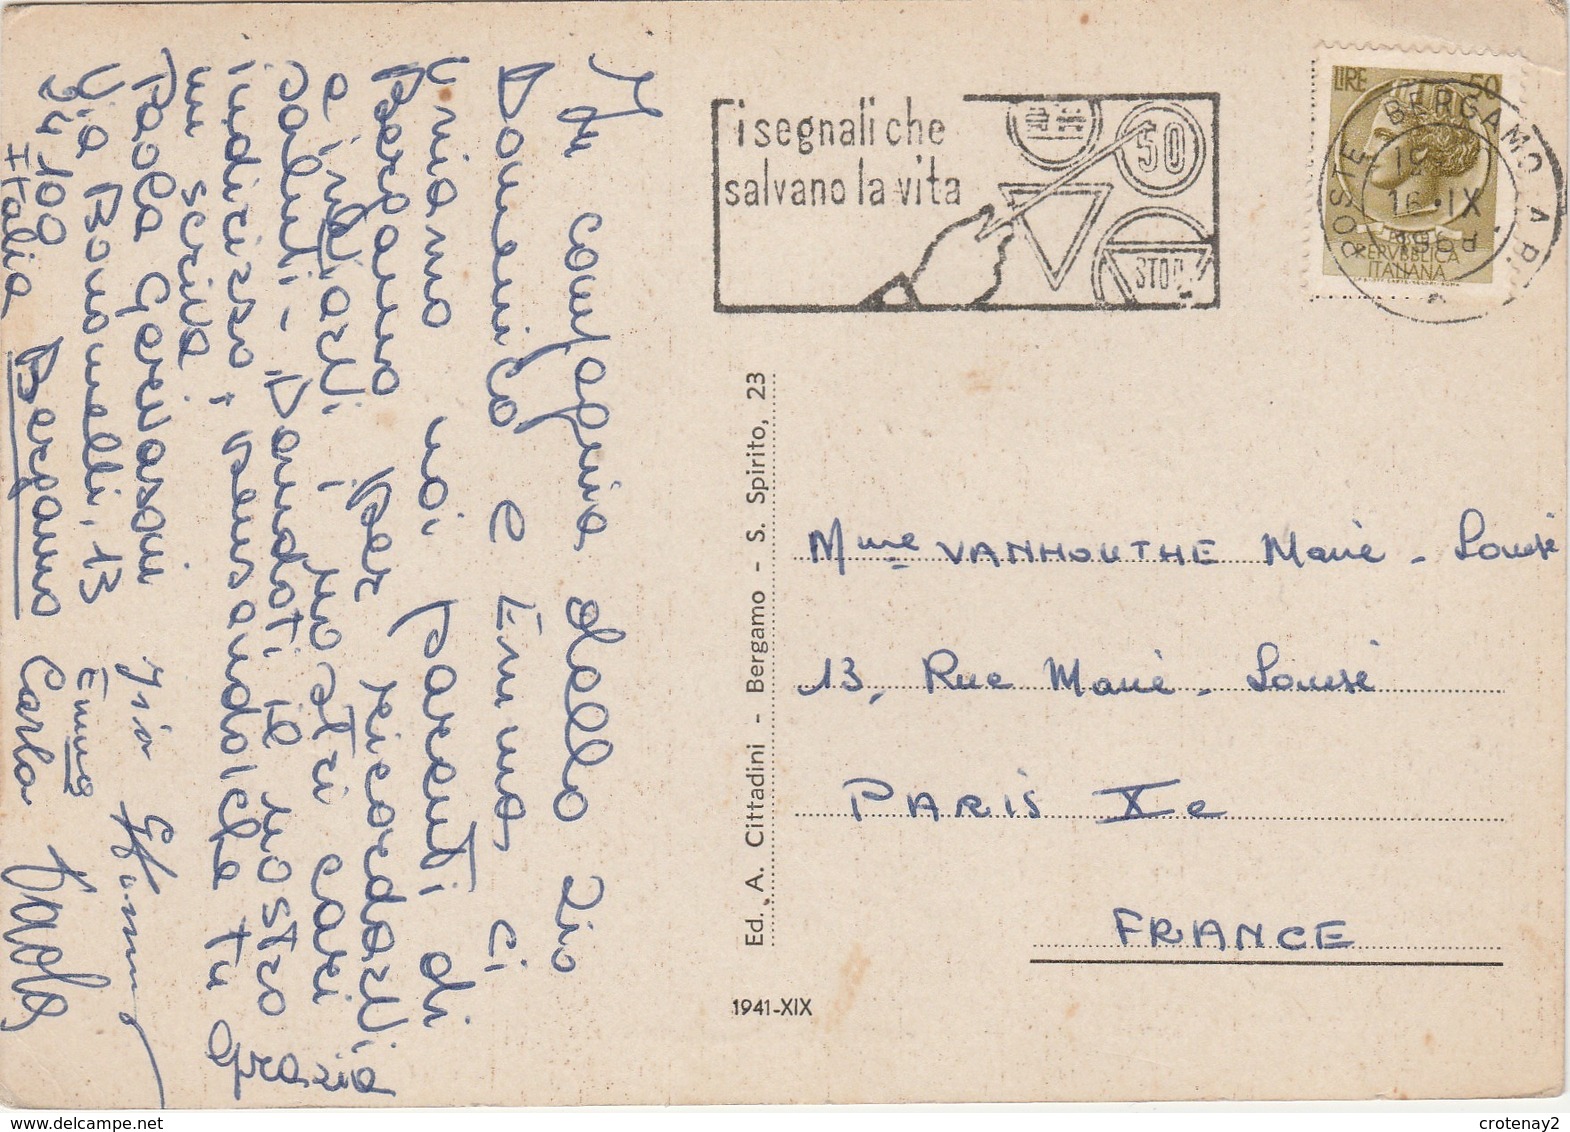 In compagnia dello zio
Domenico e Emma ci
uniamo noi parenti di
Bergamo per ricordarvi
e inviarvi i nostri cari
saluti - Mandati il nostro grazia
indirizzo, pensando che tu
mi scriva
Paola Gervasoni
Via Bonomelli, 13
24100 Bergamo
Italia
zio
Emma
Carla Paola
i segnali che
salvano la vita
50
STOP
LIRE 50
POSTE BERGAMO A.P.
16.IX
REPVBBLICA
ITALIANA
Ed. A. Cittadini - Bergamo - S. Spirito, 23
1941-XIX
Mme VANHOUTHE Marie - Louise
13, Rue Marie - Louise
PARIS Xe
FRANCE
www.delcampe.net
crotenay2